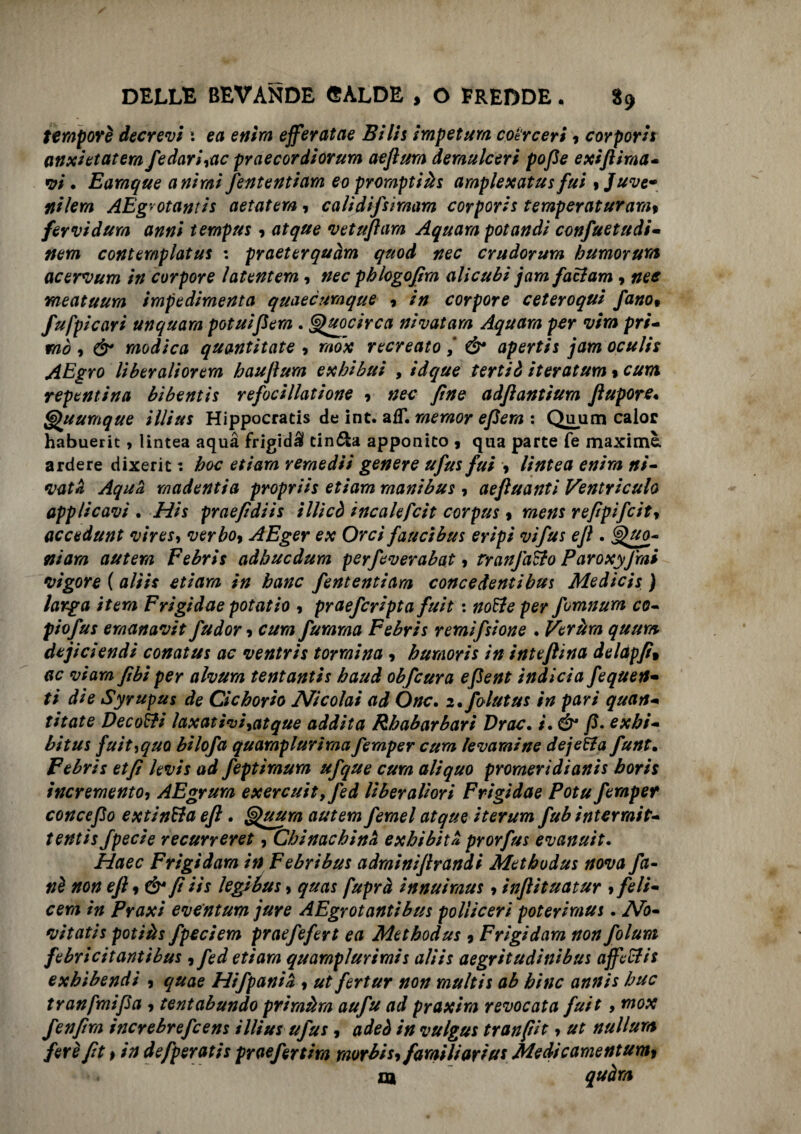 DELLE BEVANDE CALDE , O FREDDE . 89
temporè decrevi : ea enim efferatae Bilis impetum coërceri , corporis
anxietatem sedari,ac praecordiorum aestum demulceri poſse existima-
vi . Eamque animi ſententiam eo promptiùs amplexatus fui , Juve-
nilem AEgrotantis aetatem , calidiſsimam corporis temperaturam,
fervidum anni tempus , atque vetuſtam Aquam potandi conſuetudi-
nem contemplatus : praeterquàm quod nec crudorum humorum
acervum in corpore latentem , nec phlogoſim alicubi jam factam , nec
meatuum impedimenta quaecumque , in corpore ceteroqui ſano,
ſuſpicari unquam potuiſſem . Quocirca nivatam Aquam per vim pri-
mò , & modica quantitate , mox recreato , & apertis jam oculis
AEgro liberaliorem hauſtum exhibui , idque tertiò iteratum , cum
repentina bibentis refocillatione , nec ſine adſtantium ſtupore.
Quumque illius Hippocratis de int. aff. memor eſſem : Quum calor
habuerit , lintea aquâ frigidâ tincta apponito , qua parte ſe maximè
ardere dixerit : hoc etiam remedii genere uſus fui , lintea enim ni-
vatâ Aquâ madentia propriis etiam manibus , aeſtuanti Ventriculo
applicavi . His praeſidiis illicò incaleſcit corpus , mens reſipiſcit,
accedunt vires, verbo, AEger ex Orci faucibus eripi viſus eſt . Quo-
niam autem Febris adhucdum perſeverabat , tranſacto Paroxyſmi
vigore ( aliis etiam in hanc ſententiam concedentibus Medicis )
larga item Frigidae potatio , praeſcripta fuit : nocte per ſomnum co-
pioſus emanavit ſudor , cum ſumma Febris remiſsione . Verùm quum
dejiciendi conatus ac ventris tormina , humoris in inteſtina delapſi,
ac viam ſibi per alvum tentantis haud obſcura eſſent indicia ſequen-
ti die Syrupus de Cichorio Nicolai ad Onc. 2. ſolutus in pari quan-
titate Decocti laxativi,atque addita Rhabarbari Drac. i. & β. exhi-
bitus fuit,quo bilosa quamplurima ſemper cum levamine dejecta ſunt.
Febris etſi levis ad ſeptimum uſque cum aliquo promeridianis horis
incremento, AEgrum exercuit, ſed liberaliori Frigidae Potu ſemper
conceſſo extincta eſt . Quum autem ſemel atque iterum ſub intermit-
tentis ſpecie recurreret , Chinachinâ exhibitâ prorſus evanuit.
Haec Frigidam in Febribus adminiſtrandi Methodus nova ſa-
nè non eſt , & ſi iis legibus , quas ſuprà innuimus , inſtituatur , feli-
cem in Praxi eventum jure AEgrotantibus polliceri poterimus . No-
vitatis potiùs ſpeciem praeſefert ea Methodus , Frigidam non ſolum
febricitantibus , ſed etiam quamplurimis aliis aegritudinibus affectis
exhibendi , quae Hiſpaniâ , ut fertur non multis ab hinc annis huc
tranſmiſſa , tentabundo primùm auſu ad praxim revocata fuit , mox
ſenſim increbreſcens illius uſus , adeò in vulgus tranſiit , ut nullum
ferè ſit , in deſperatis praeſertim morbis, familiarius Medicamentum,
m quàm